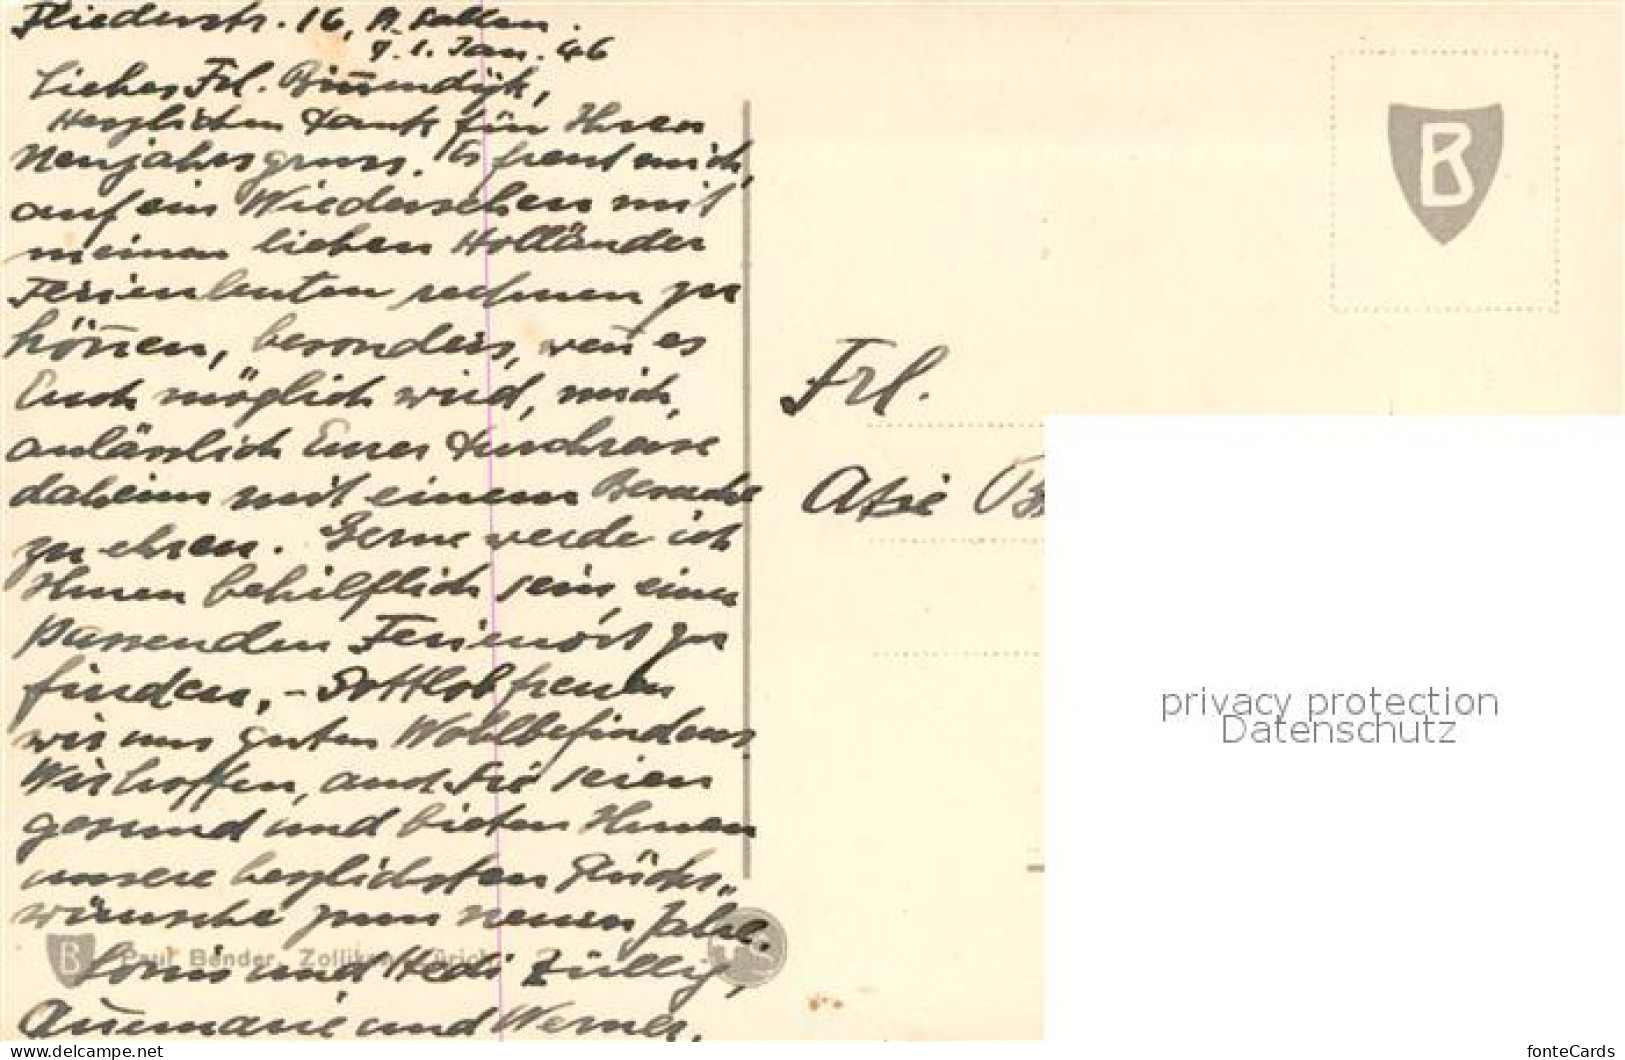 Fliederstr. 16, St. Gallen.
d. 1. Jan. 46
Liebes Frl. Binnendijk,
Herzlichen Dank für Ihren
Neujahrsgruss. Es freut mich,
auf ein Wiedersehen mit
meinen lieben Holländer
Ferienleuten rechnen zu
können, besonders, wenn es
Euch möglich wird, mich,
anlässlich Eurer Durchreise
daheim mit einem Besuche
zu ehren. Gerne werde ich
Ihnen behilflich sein, einen
passenden Ferienort zu
finden, – Gottlob freuen
wir uns guten Wohlbefindens.
Wir hoffen, auch Sie seien
gesund und bieten Ihnen
unsere herzlichsten Glücks-
wünsche zum neuen Jahre.
Louis und Hedi Züllig,
Annemarie und Werner.
B
Frl.
Atie
privacy protection
Datenschutz
B Paul Bender, Zollikon-Zürich
delcampe.net/collections/sammlerecke
fonteCards